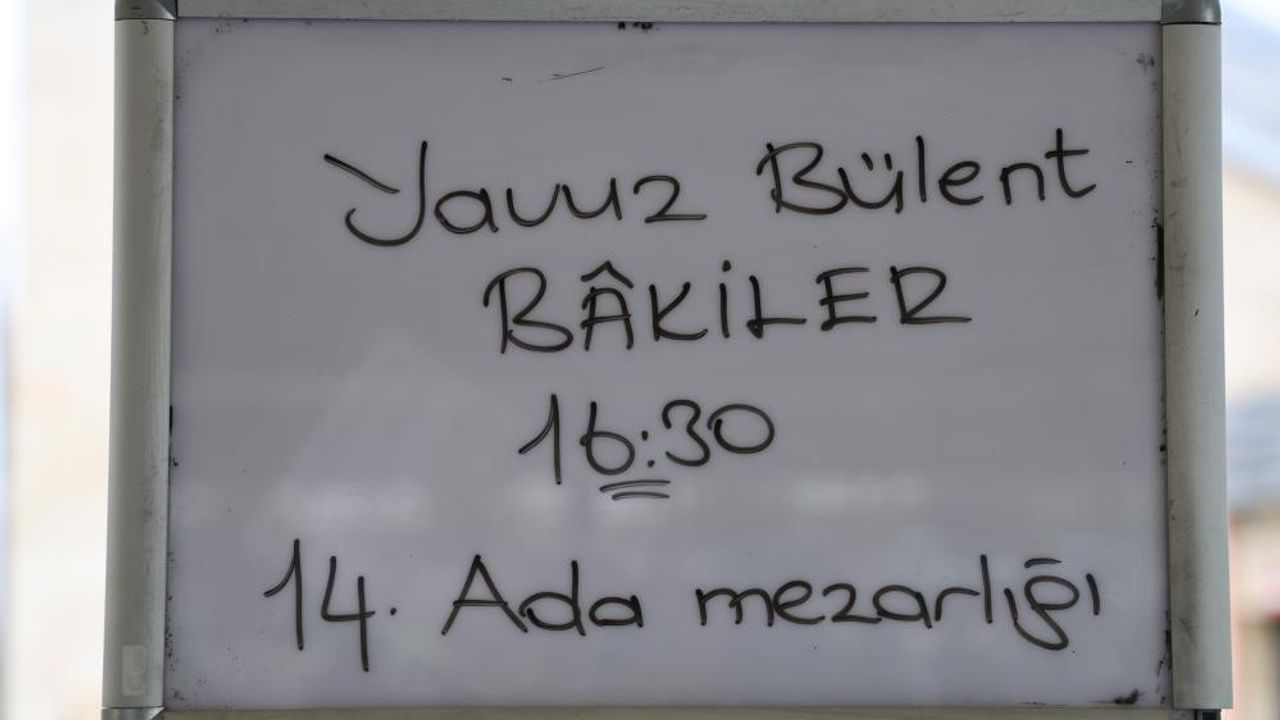 Yavuz Bülent
BÂKİLER
16:30
14. Ada mezarlığı